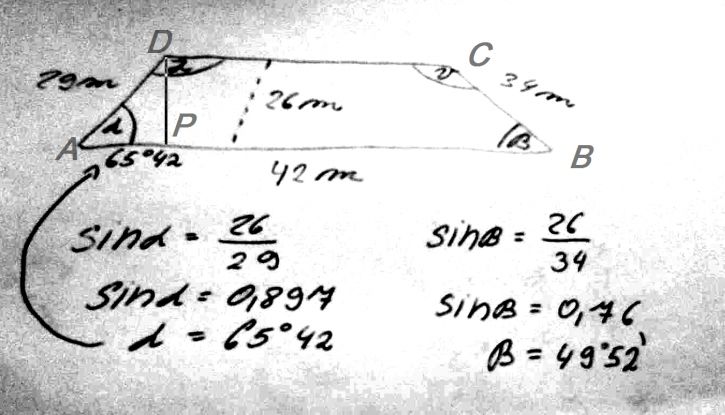 D
C
29m
α
δ
γ
34m
26m
A
P
β
B
65°42
42m
sinα = 26/29
sinα = 0,897
α = 65°42
sinβ = 26/34
sinβ = 0,76
β = 49°52'